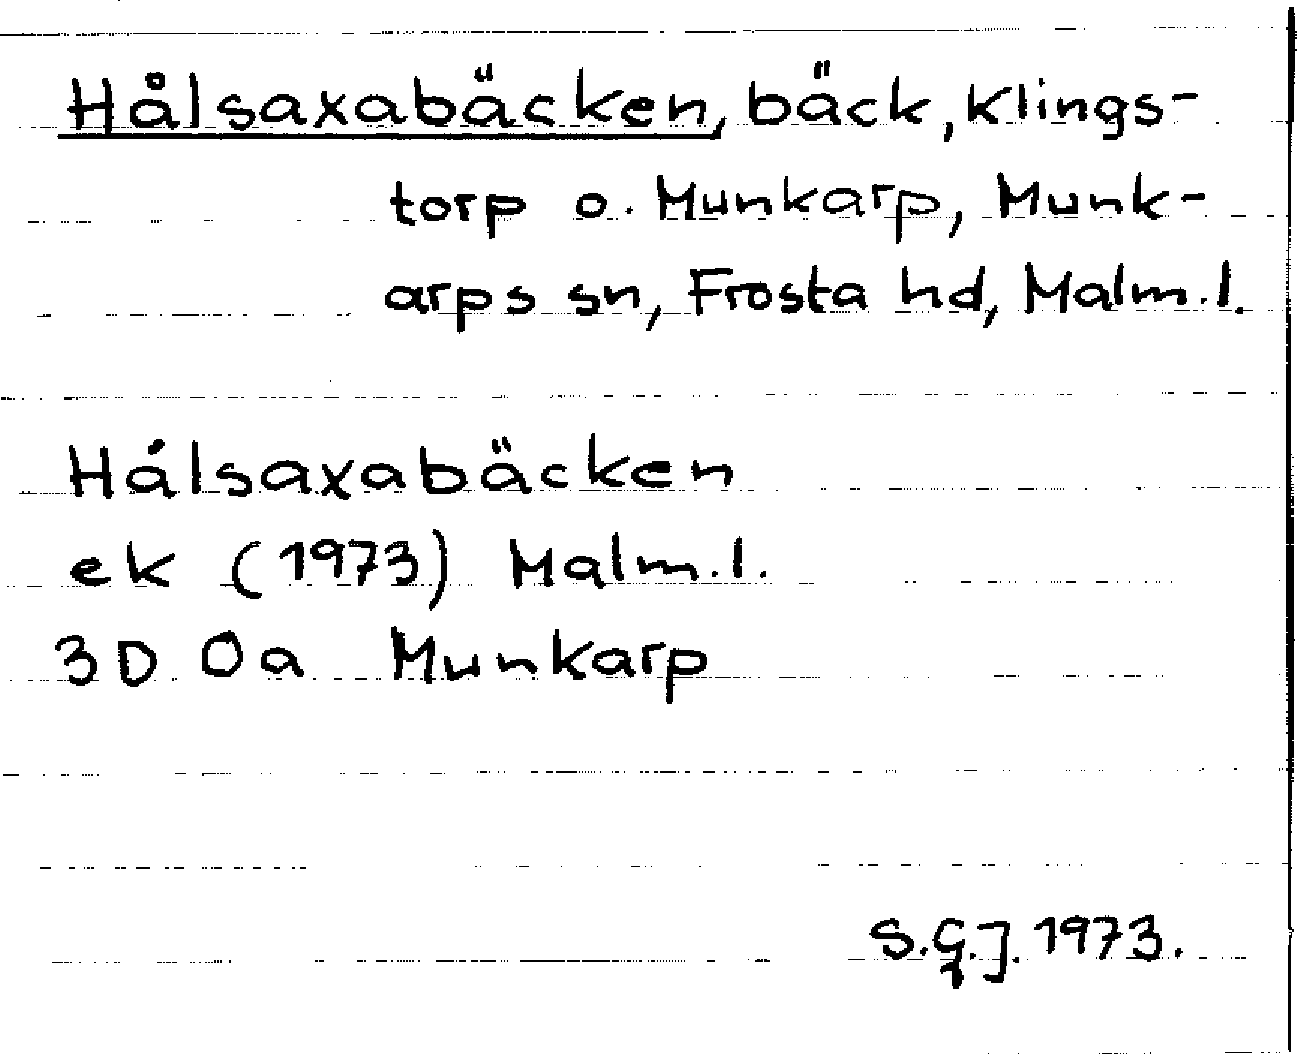 Hålsaxabäcken, bäck, Klings-
torp o. Munkarp, Munk-
arps sn, Frosta hd, Malm.l.
Hålsaxabäcken
ek (1973) Malm.l.
3D 0a Munkarp
S.G.J. 1973.